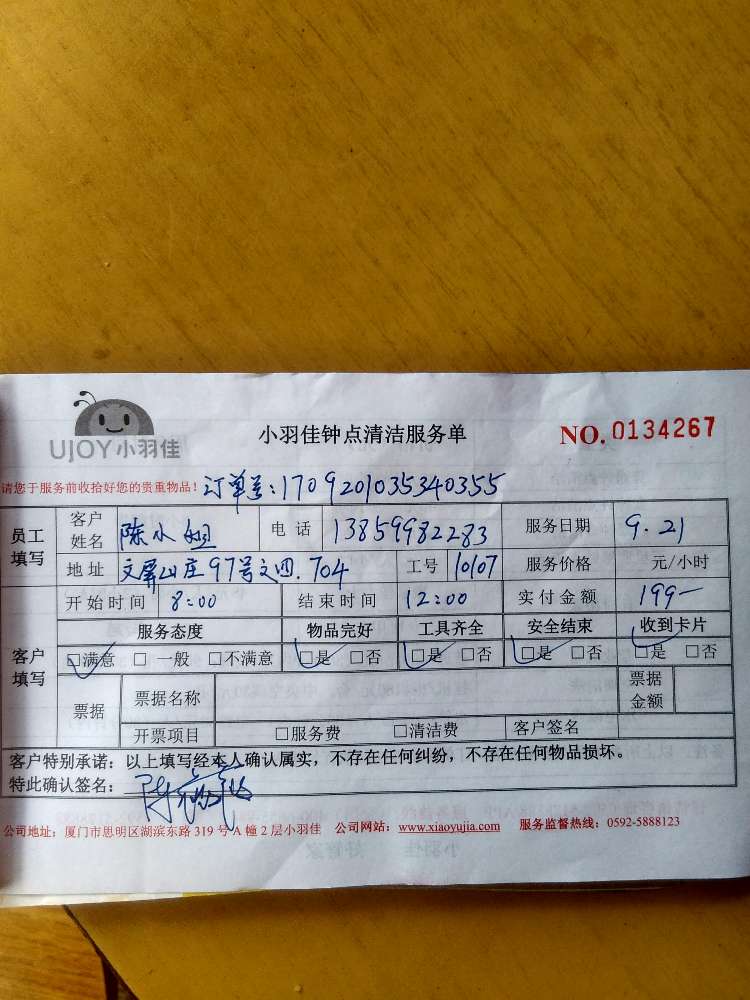 UJOY小羽佳
小羽佳钟点清洁服务单
NO. 0134267
请您于服务前收拾好您的贵重物品! 订单号:170920103534​0355
员工填写 客户姓名 陈小姐 电话 13859982283 服务日期 9.21
地址 文屏山庄97号文四.704 工号 10107 服务价格 元/小时
开始时间 8:00 结束时间 12:00 实付金额 199-
客户填写 服务态度 物品完好 工具齐全 安全结束 收到卡片
☑满意 □一般 □不满意 ☑是 □否 ☑是 □否 ☑是 □否 ☑是 □否
票据 票据名称 票据金额
开票项目 □服务费 □清洁费 客户签名
客户特别承诺:以上填写经本人确认属实,不存在任何纠纷,不存在任何物品损坏。
特此确认签名:
公司地址:厦门市思明区湖滨东路 319 号 A 幢 2 层小羽佳 公司网站:www.xiaoyujia.com 服务监督热线:0592-5888123